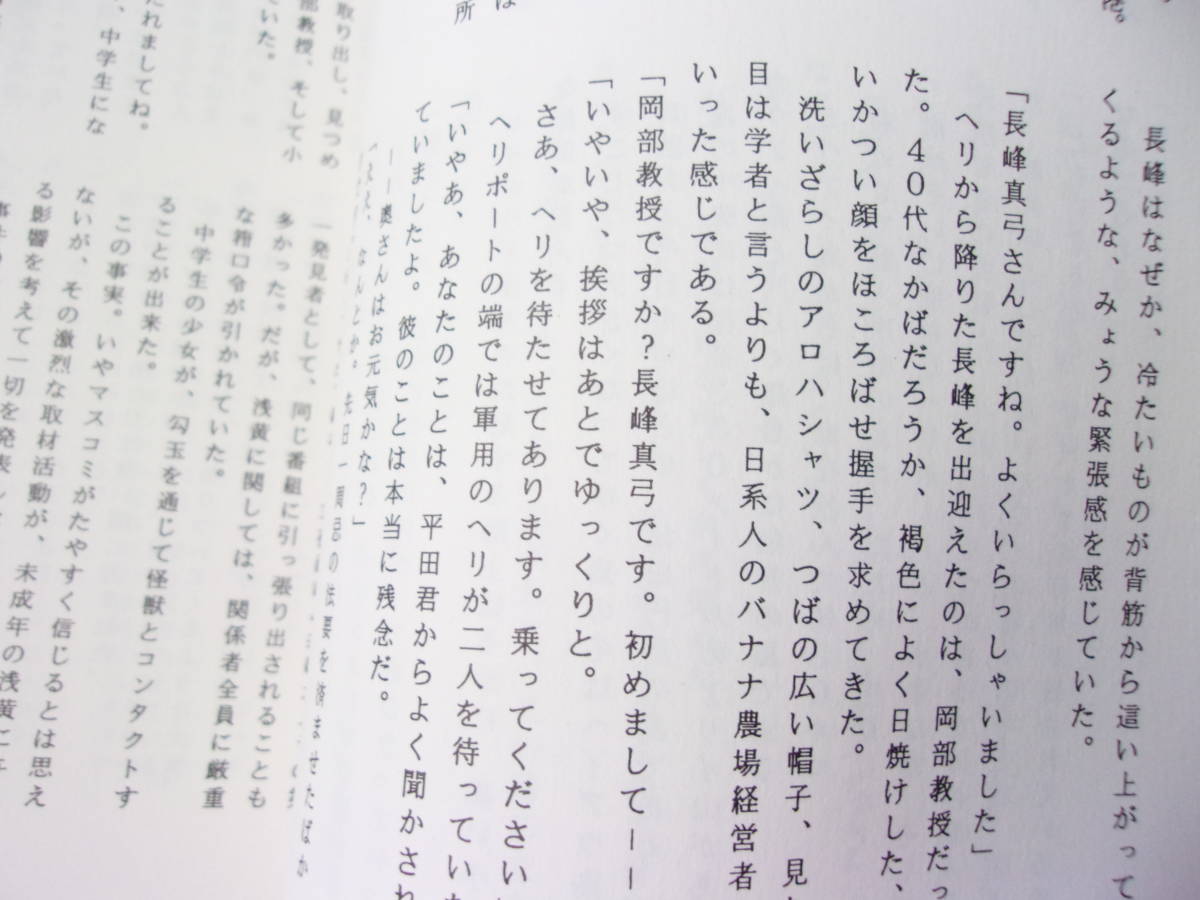 陸。
は
所
長峰はなぜか、冷たいものが背筋から這い上がって
くるような、みょうな緊張感を感じていた。
「長峰真弓さんですね。よくいらっしゃいました」
ヘリから降りた長峰を出迎えたのは、岡部教授だっ
た。40代なかばだろうか、褐色によく日焼けした、
いかつい顔をほころばせ握手を求めてきた。
洗いざらしのアロハシャツ、つばの広い帽子、見
目は学者と言うよりも、日系人のバナナ農場経営者
いった感じである。
「岡部教授ですか?長峰真弓です。初めましてーー
「いやいや、挨拶はあとでゆっくりと。
さあ、ヘリを待たせてあります。乗ってください
ヘリポートの端では軍用のヘリが二人を待ってい
「いやあ、あなたのことは、平田君からよく聞かされ
ていましたよ。彼のことは本当に残念だ。
――奥さんはお元気かな?」
の法要を済ませたばか
取り出し、見つめ
部教授、そして小
ていた。
たれましてね。
、中学生にな
一発見者として、同じ番組に引っ張り出されることも
多かった。だが、浅黄に関しては、関係者全員に厳重
な箝口令が引かれていた。
中学生の少女が、勾玉を通じて怪獣とコンタクトす
ることが出来た。
この事実。いやマスコミがたやすく信じるとは思え
ないが、その激烈な取材活動が、未成年の浅黄に
る影響を考えて一切を発表